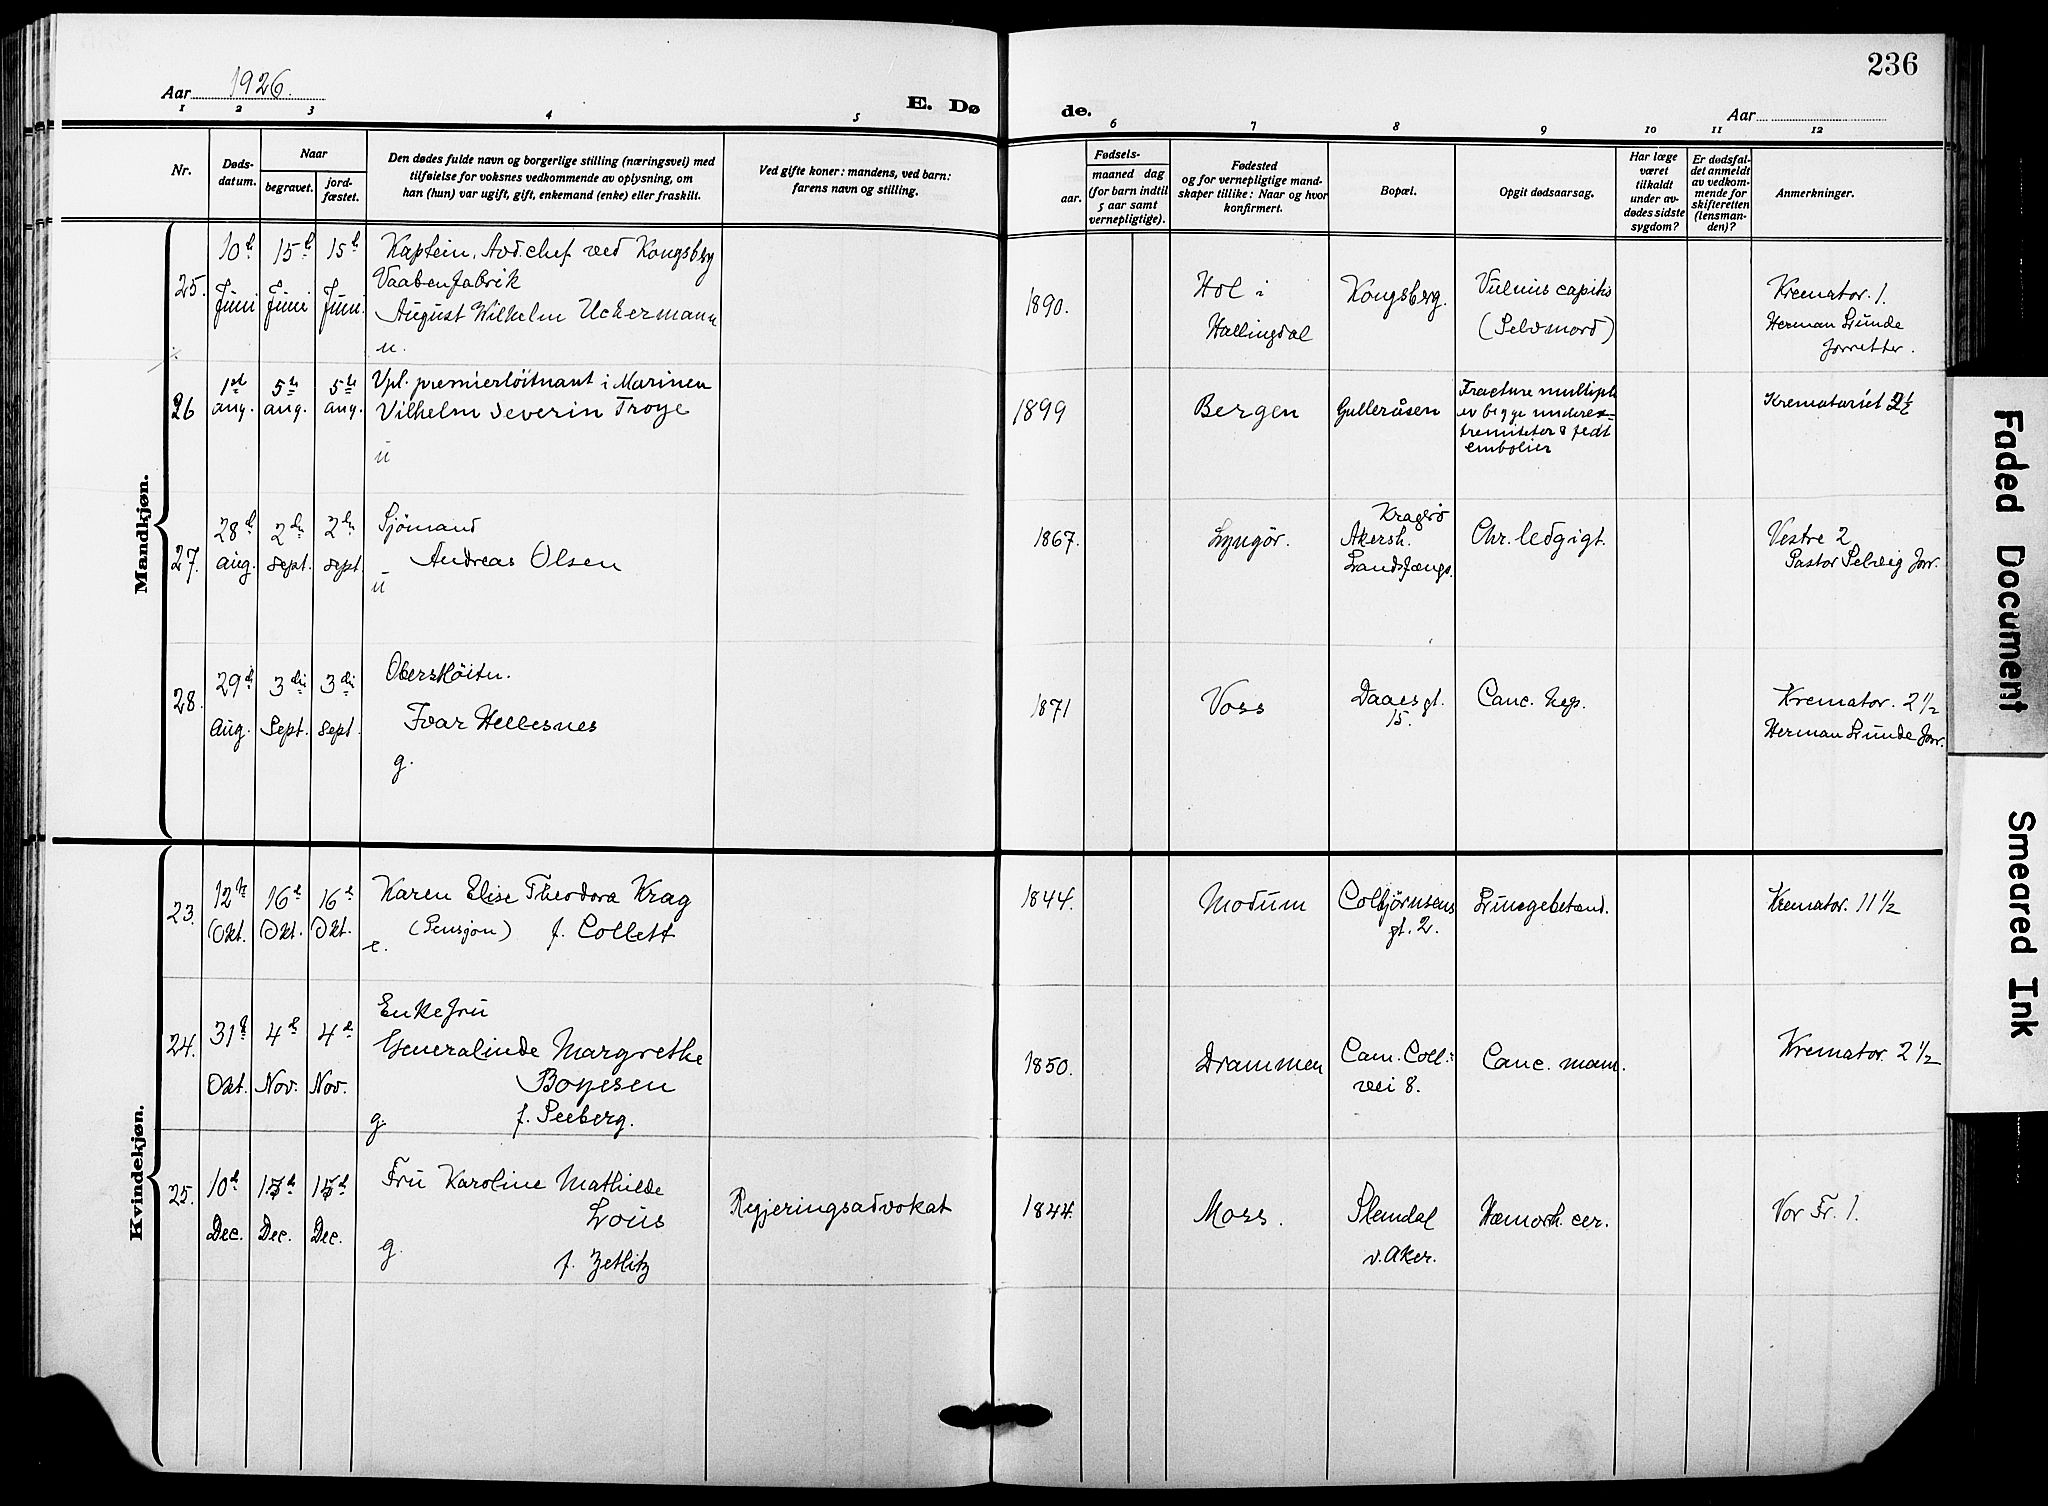 236
Aar 1926.
E. Døde.
Aar
1 2 3 4 5 6 7 8 9 10 11 12
Nr.
Døds-
datum.
Naar
begravet.
jord-
fæstet.
Den dødes fulde navn og borgerlige stilling (næringsvei) med
tilføielse for voksnes vedkommende av oplysning, om
han (hun) var ugift, gift, enkemand (enke) eller fraskilt.
Ved gifte koner: mandens, ved barn:
farens navn og stilling.
Fødsels-
aar.
maaned dag
(for barn indtil
5 aar samt
vernepligtige).
Fødested
og for vernepligtige mand-
skaper tillike: Naar og hvor
konfirmert.
Bopæl.
Opgit dødsaarsag.
Har læge
været
tilkaldt
under av-
dødes sidste
sygdom?
Er dødsfal-
det anmeldt
av vedkom-
mende for
skifteretten
(lensman-
den)?
Anmerkninger.
Mandkjøn.
25.
10d Juni
15d Juni
15d Juni.
Kaptein, Avd.chef ved Kongsberg
Vaabenfabrik
August Wilhelm Uckermann
u.
1890.
Hol i
Hallingdal
Kongsberg.
Vulnus capitis
(Selvmord)
Kremator. 1.
Herman Lunde
forretter.
26
1ste aug.
5te aug.
5te aug.
Vpl. premierløitnant i Marinen
Vilhelm Severin Troye
u
1899
Bergen
Gulleråsen
Fracture multiple
ev begge underex-
tremiteter & fedt
embolier
Krematoriet 2½
27.
28d aug.
2den sept.
2den sept.
Sjömand
Andreas Olsen
u
1867.
Lyngör.
Kragerö
Akersh.
Landsfængs.
Chr. ledgigt.
Vestre 2
Pastor Selvig forr.
28.
29d aug.
3die Sept.
3die sept.
Oberstlöitn.
Ivar Hellesnes
g.
1871
Voss
Daaesgt.
15.
Canc. hep.
Kremator. 2 1/2
Herman Lunde forr.
Kvindekjøn.
23.
12te Okt.
16d Okt.
16d Okt.
Karen Elise Theodora Krag
(Pensjon) f. Collett
e.
1844.
Modum
Colbjörnsens
gt. 2.
Lungebetænd.
Kremator. 11 1/2
24.
31d Okt.
4d Nov.
4d Nov.
Enkefru
Generalinde Margrethe
Boyesen
g. f. Seeberg.
1850.
Drammen
Cam. Coll:
vei 8.
Canc. mam.
Kremator. 2 1/2
25.
10d Dec.
15d Dec.
15d Dec.
Fru Karoline Mathilde
Lous
g.
f. Zetlitz
Regjeringsadvokat
1844.
Moss.
Slemdal
v. Aker.
Hæmorh. cer.
Vor Fr. 1.
Faded Document
Smeared Ink